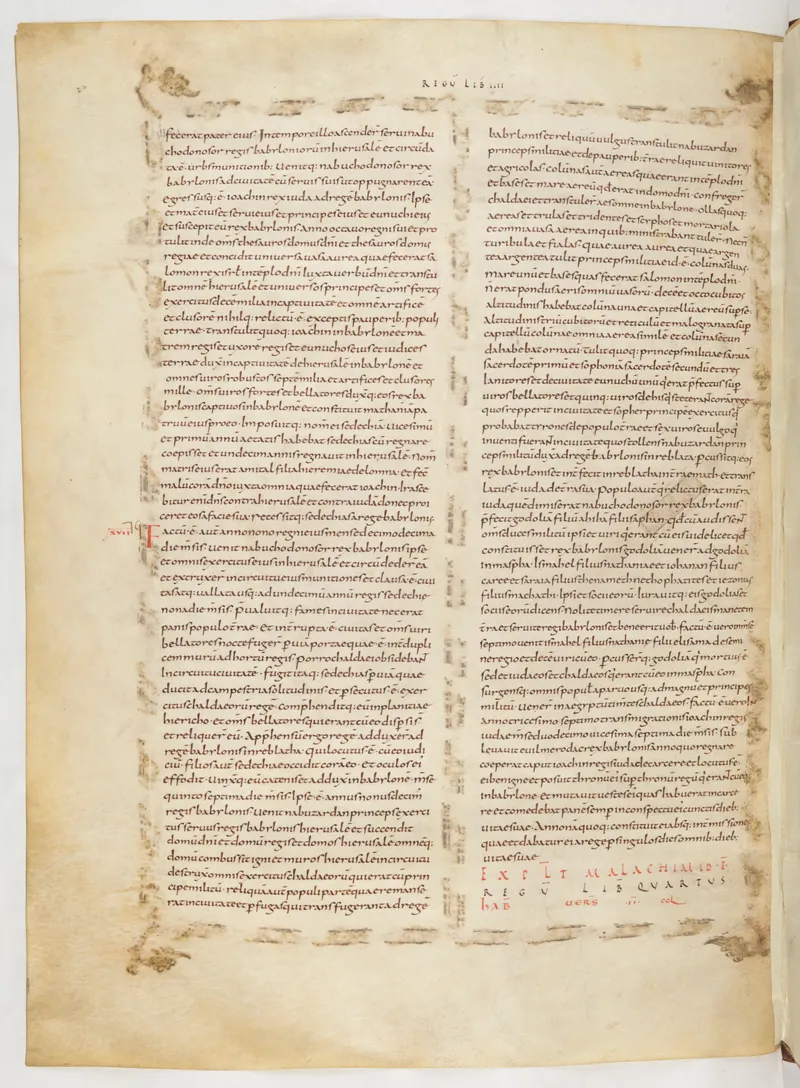 REGŪ LIB IIII
fecerat pater eius Intempore illo ascender serui nabu
chodonosor regis babylonis inhierusalē et circūda
ta ē urbs munitionib: Uenitq: nabuchodonosor rex
babylonis adciuitatē cū seruis suis ut oppugnarent eā
egressusq: ē ioachin rex iuda adregē babylonis Ipse
et mater eius et serui eius et principes eius et eunuchi eius
et suscepit eū rex babylonis Anno octauo regni sui et pro
tulit inde oms thesauros domus dni et thesauros domus
regiae et concidit uniuersa uasa aurea quae fecerat sa
lomon rex isrl Intēplo dni Iuxta uerbū dni et transtu
lit omnē hierusalē et uniuersos principes et oms fortes
exercitus decē milia incaptiuitatē et omnē artificē
et clusorē nihilq: relictū ē exceptis pauperib: populi
terrae transtulit quoq: ioachin inbabylonē et ma
trem regis et uxores regis et eunuchos eius et iudices
terrae duxit incaptiuitatē dehierusalē inbabylonē et
omnes uiros robustos septē milia et artifices et clusores
mille omnes uiros fortes et bellatores duxitq: eos rex ba
bylonis captiuos inbabylonē et constituit mathania pa
truū eius pro eo Imposuitq: nomē ei sedechiā Uicesimū
et primū annū aetatis habebat sedechias cū regnare
coepisset et undecim annis regnauit inhierusalē Nom̄
matris eius erat amital filia hieremiae delomna et fec̄
malū corā dno iuxta omnia quae fecerat ioachin Irasce
batur enī dns contra hierusalē et contra iudā donec proi
ceret eos afacie sua recessitq: sedechias arege babylonis
XVII
Factū ē aut̄ anno nono regni eius mense decimo decima
die msis Uenit nabuchodonosor rex babylonis ipse
et omnis exercitus eius inhierusalē et circūdeder eā
et extruxer incircuitu eius munitiones et clausa ē ciui
tas atq: uallata usq: adundecimū annū regis sedechie
nona die msis Praeualuitq: fames inciuitate nec erat
panis populo trae Et intrupta ē ciuitas et oms uiri
bellatores nocte fuger p uiā portae quae ē int dupli
cem murū adhortū regis porro chaldaei obsidebant
Incircuitu ciuitatē fugit itaq: sedechias p uiā quae
ducit adcampestria solitudinis et psecutus ē exer
citus chaldaeorū regē comphenditq: eū inplanitiae
hiericho et oms bellatores qui erant cū eo dispsi st
et reliquer eū Apphensū ergo regē adduxer ad
regē babylonis inreblatha qui locutus ē cū eo iudi
ciū filios aut̄ sedechiae occidit corā eo et oculos ei
effodit Uinxitq: eū catenis et adduxit inbabylonē mse
quinto septima die msis Ipse ē annus nonusdecim̄
regis babylonis Uenit nabuzardan princeps exerci
tus seruus regis babylonis hierusalē et succendit
domū dni et domū regis et domos hierusalē omneq:
domū combussit igni et muros hierusalē incircuitu
destruxit omnis exercitus chaldaeorū qui erat cū prin
cipe militū reliquā aut̄ populi partē quae remanse
rat inciuitate et pfugas qui transfugerant adregē
babylonis et reliquū uulgus transtulit nabuzardan
princeps militiae et depauperib: trae reliquit uinitores
et agricolas colūnas aut̄ aereas quae erant intēplo dni
et bases et mare aereū qd erat indomo dni confreger
chaldaei et transtuler aes omne inbabylonē ollas quoq:
aereas et trullas et tridentes et scyphos et mortariola
et omnia uasa aerea inquib: ministrabant tuler Necn̄
turibula et fialas quae aurea aurea et quae argen
tea argentea tulit princeps militiae id ē colūnas duas
mare unū et bases quas fecerat salomon intēplo dni
Nerat pondus aeris omniū uasorū decē et octo cubitos
altitudinis habebat colūna una et capitellū aereū sup se
altitudinis triū cubitorū et reticulū et malogranata sup
capitellū colūnae omnia aerea similē et colūna secun
da habebat ornatū tulit quoq: princeps militiae saraiā
sacerdotē primū et sophoniā sacerdotē secundū et tres
Ianitores et deciuitate eunuchū unū qui erat pfectus sup
uiros bellatores et quinq: uiros dehis qui steterant corā rege
quos repperit inciuitate et sopher principē exercitus qui
probabat tirones depopulo trae et sex uiros e uulgo qui
inuenti fuerant inciuitate quos tollens nabuzardan prin
ceps militū duxit adregē babylonis inreblata pcussitq: eos
rex babylonis et intfecit inreblatha intra emath et trans
latus ē iuda detra sua populo aut̄ qui relictus erat intra
iuda quē dimiserat nabuchodonosor rex babylonis
pfecit godoliā filiū ahihā filii saphan qd cū audissent
oms duces militū ipsi et uiri qui erant cū eis uidelicet qd
constituisset rex babylonis godoliā uener ad godoliā
inmaspha Ismahel filius nathaniae et iohanan filius
caree et saraia filius thenameth nethophatites et iezonias
filius maachathi Ipsi et socii eorū Iurauitq: eis godolias et
sociis eorū dicens Nolite timere seruire chaldaeis manete in
tra et seruite regi babylonis et bene erit uob: factū ē uero mnse
septimo uenit ismahel filius nathaniae filii elisama desemi
ne regio et decē uiri cū eo pcusserq: godoliā qui mortuus ē
sed et iudaeos et chaldaeos qui erant cū eo inmaspha Con
surgensq: omnis popul̄ aparuo usq: admagnū et principes
militū Uener inaegyptū timentes chaldaeos factū ē uero In
anno tricesimo septimo transmigrationis ioachin regis
iudae mse duodecimo uicesima septima die msis Sub
leuauit euilmerodac rex babylonis anno quo regnare
coeperat caput ioachin regis iuda decarcere et locutus ē
ei benigne et posuit thronū ei sup thronū regū qui erant cū eo
inbabylone et mutauit uestes eius quas habuerat incarce
re et comedebat panē semp inconspectu ei cunctis dieb:
uitae suae Annonā quoq: constituit ei absq: intmissione
quae et dabatur ei arege p singulos dies omnib: dieb:
uitae suae
EXPLT MALACHIM ID Ē
REGŪ LIB QUARTUS
HAB UERS II CCL